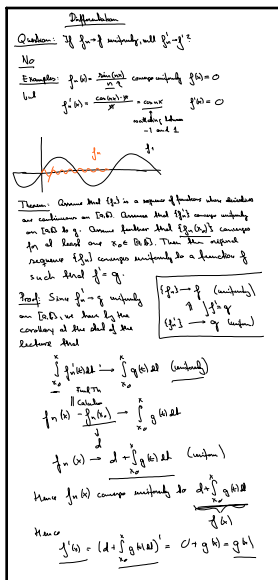 Differentiation
Question: If fn → f uniformly, will fn' → f'?
No
Examples: fn(x) = sin(nx)/n converges uniformly f(x) = 0
but fn'(x) = cos(nx)·n/n = cos nx f'(x) = 0
oscillating between
-1 and 1
fn f1
Theorem: Assume that {fn} is a sequence of functions whose derivatives
are continuous on [a,b]. Assume that {fn'} converges uniformly
on [a,b] to g. Assume further that {fn(x0)} converges
for at least one x0 ∈ [a,b]. Then the
sequence {fn} converges uniformly to a function f
such that f' = g.
Proof: Since fn' → g uniformly
on [a,b], we have by the
corollary at the end of the
lecture that
{fn} → f (uniformly)
f' = g
{fn'} → g (uniform)
∫_{x0}^{x} fn'(t)dt → ∫_{x0}^{x} g(t)dt (uniformly)
|| Calculus
fn(x) - fn(x0) → ∫_{x0}^{x} g(t)dt
↓
d
fn(x) → d + ∫_{x0}^{x} g(t)dt (uniform)
Hence fn(x) converges uniformly to d + ∫_{x0}^{x} g(t)dt
f(x)
Hence
f'(x) = (d + ∫_{x0}^{x} g(t)dt)' = 0 + g(x) = g(x)